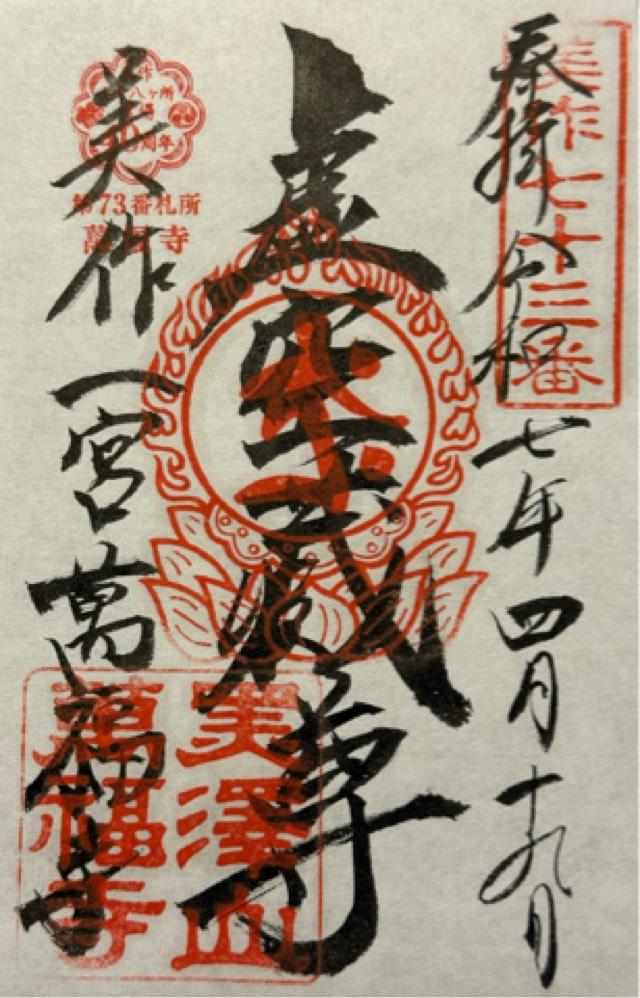 美作七十三番
奉拝 令和七年四月十九日
虚空蔵尊
美作一宮萬福寺
第73番札所
萬福寺
美澤山
萬福寺